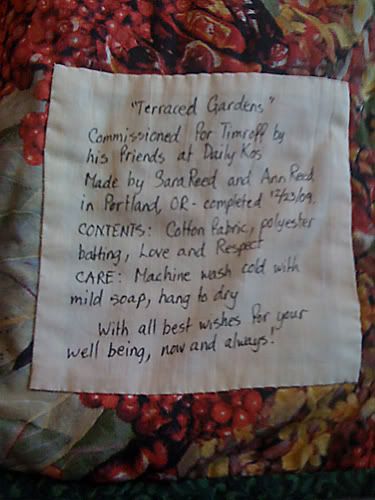 "Terraced Gardens"
Commissioned for Timroff by
his friends at Daily Kos
Made by Sara Reed and Ann Reed
in Portland, OR - completed 12/23/09.
CONTENTS: Cotton Fabric, polyester
batting, Love and Respect
CARE: Machine wash cold with
mild soap, hang to dry
With all best wishes for your
well being, now and always!